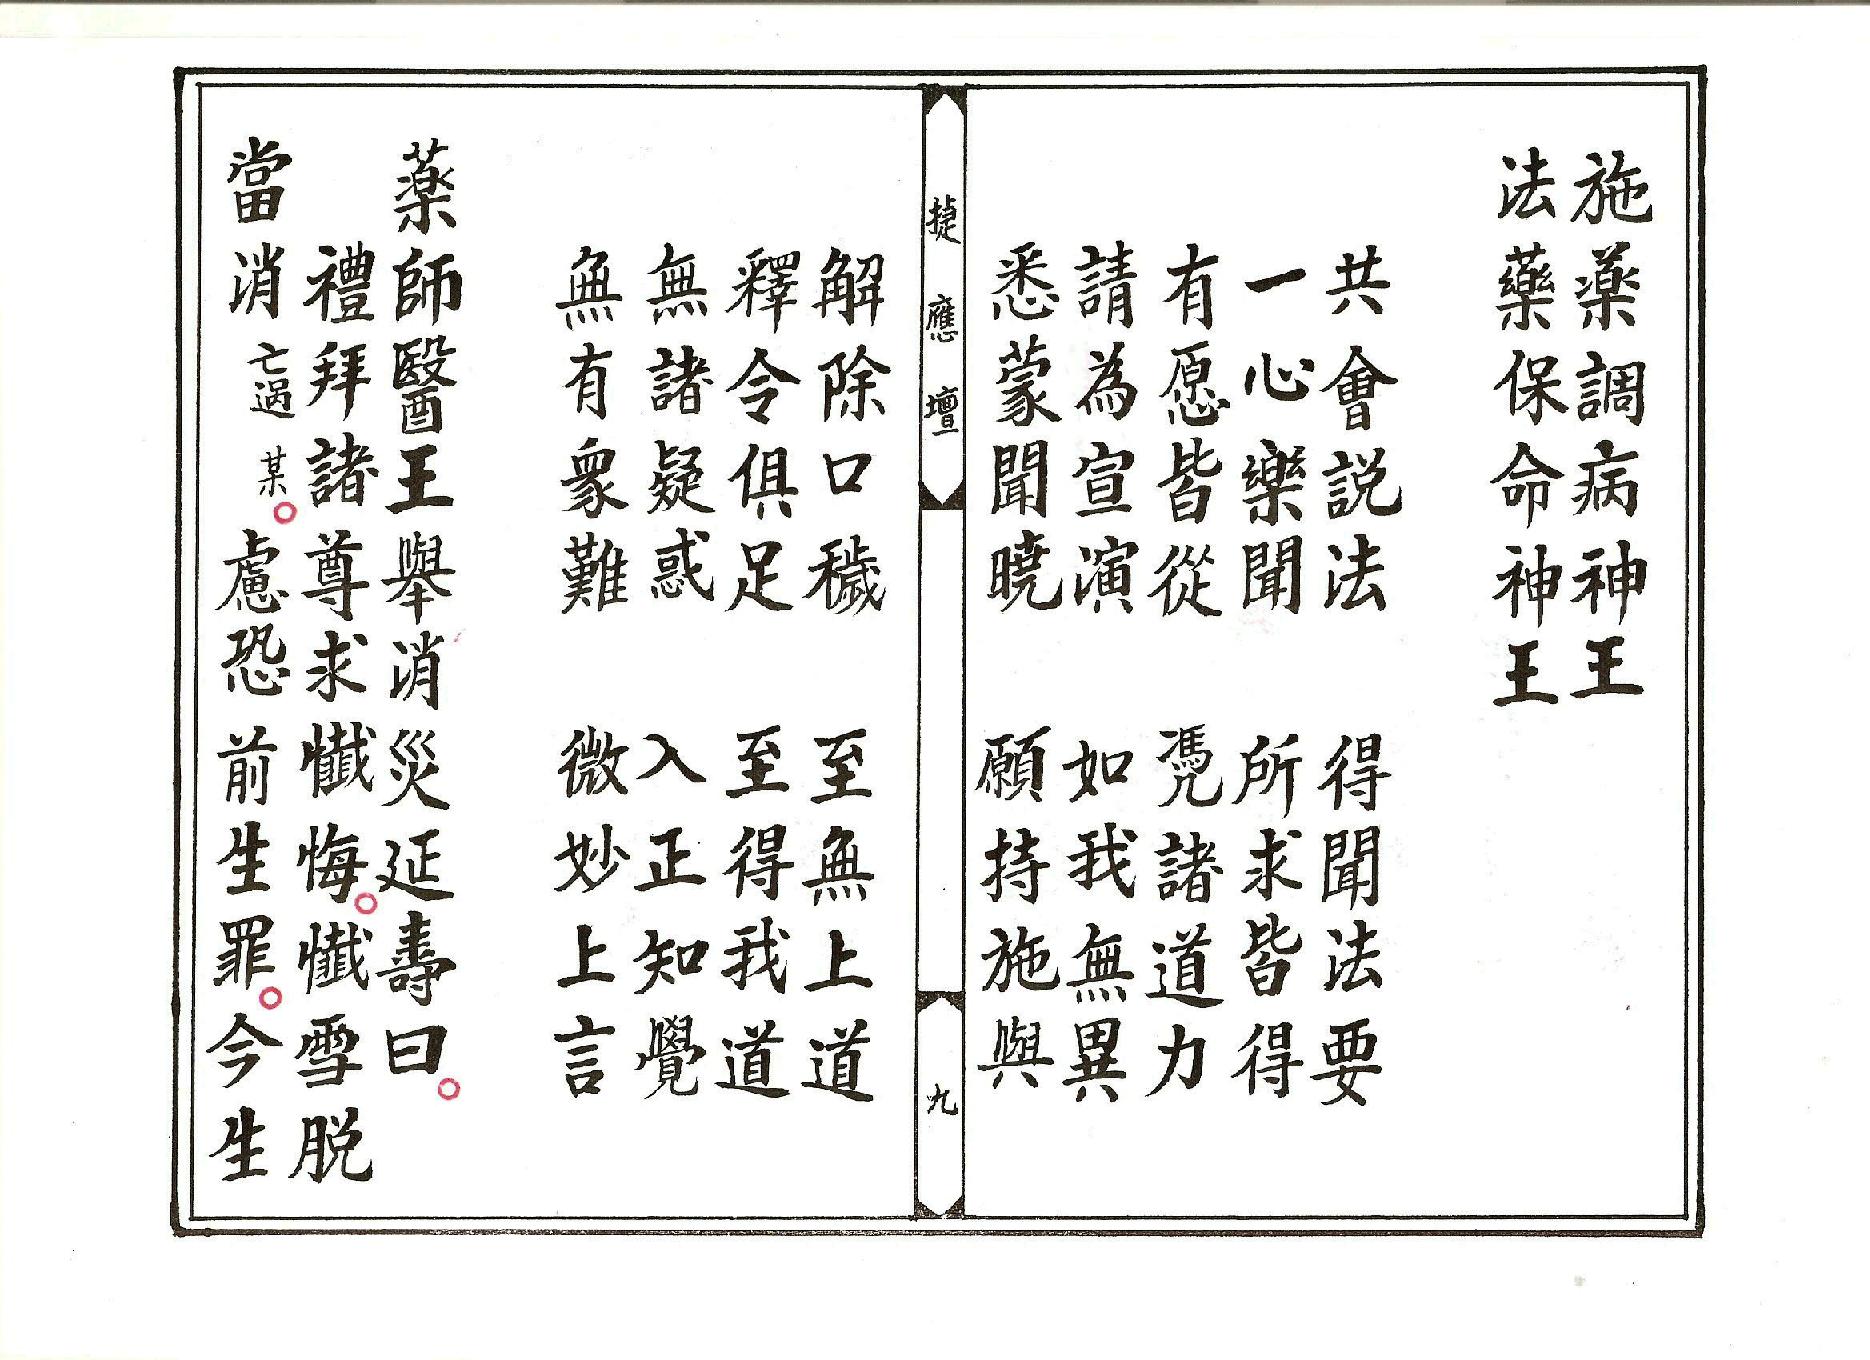 施藥調病神王
法藥保命神王
共會説法　得聞法要
一心樂聞　所求皆得
有愿皆從　憑諸道力
請為宣演　如我無異
悉蒙聞曉　願持施與
捷應壇　九
解除口穢　至無上道
釋令俱足　至得我道
無諸疑惑　入正知覺
無有衆難　微妙上言
薬師醫王舉消災延壽曰。
禮拜諸尊求懺悔。懺雪脱
當消亡過某。慮恐前生罪。今生